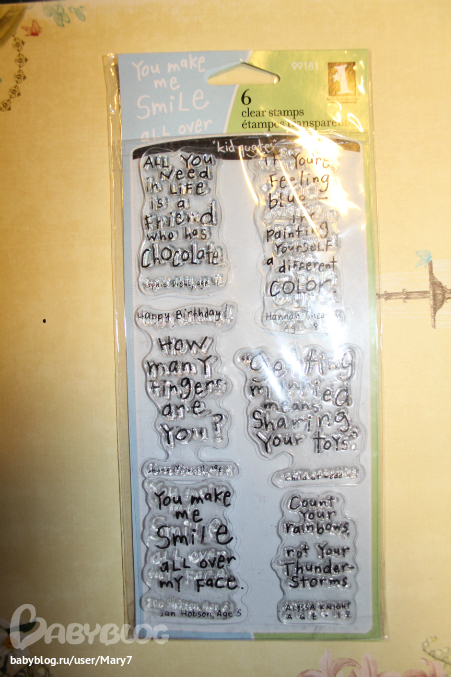 You make
me
SmiLe
all over
99161
6
clear stamps
étampes transparentes
'kid quotes'
ALL You
Need
in LiFe
is a
Friend
who has
Chocolate
If You're
Feeling
blue
try
Painting
Yourself
a different
COLOR
Happy Birthday!
Hannah
How
many
fingers
are
You?
"Getting
married
means
Sharing
Your toys."
You make
me
Smile
all over
my Face.
Jan Hobson, Age 5
Count
Your
rainbows,
not Your
Thunder-
Storms
ALYSSA KNIGHT
BABYBLOG
babyblog.ru/user/Mary7